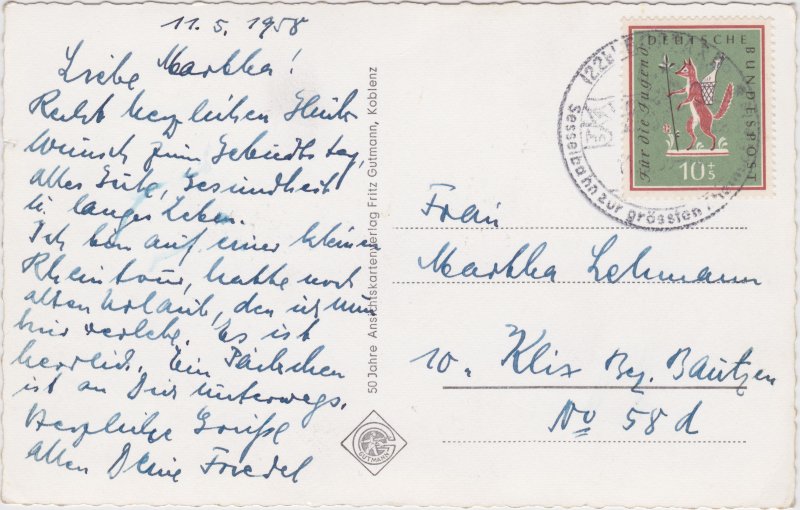 11.5.1958
Liebe Martha!
Recht herzlichen Glück-
wunsch zum Gebutstag,
alles Gute, Gesundheit
u. langes Leben.
Ich bin auf einer kleinen
Rheintour, hatte noch
alten Urlaub, den ich nun
hier verlebe. Es ist
herrlich. Ein Päckchen
ist an Dich unterwegs.
Herzliche Grüße
allen Deine Friedel
50 Jahre Ansichtskartenverlag Fritz Gutmann, Koblenz
GUTMANN
DEUTSCHE BUNDESPOST
Für die Jugend
10+5
(22b)
Sesselbahn zur grössten
Frau
Martha Lehmann
10. Klix Bez. Bautzen
No 58d